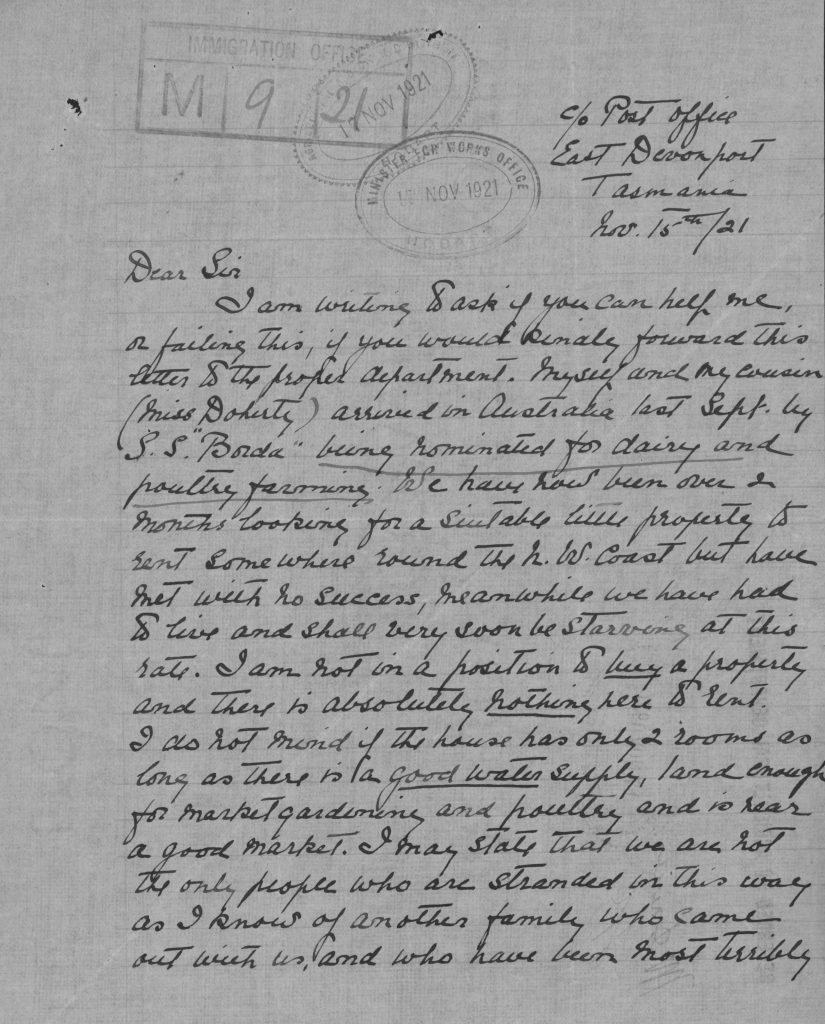 IMMIGRATION OFFICE
M 9 21
17 NOV 1921
MINISTER FOR WORKS OFFICE
17 NOV 1921
HOBART
c/o Post Office
East Devonport
Tasmania
Nov. 15th/21
Dear Sir
I am writing to ask if you can help me,
or failing this, if you would kindly forward this
letter to the proper department. Myself and my cousin
(Miss Doherty) arrived in Australia last Sept. by
S.S. "Borda" being nominated for dairy and
poultry farming. We have now been over 2
months looking for a suitable little property to
rent somewhere round the N. W. Coast but have
met with no success, meanwhile we have had
to live and shall very soon be starving at this
rate. I am not in a position to buy a property
and there is absolutely nothing here to rent.
I do not mind if the house has only 2 rooms as
long as there is a good water supply, land enough
for market gardening and poultry and is near
a good market. I may state that we are not
the only people who are stranded in this way
as I know of another family who came
out with us, and who have been most terribly